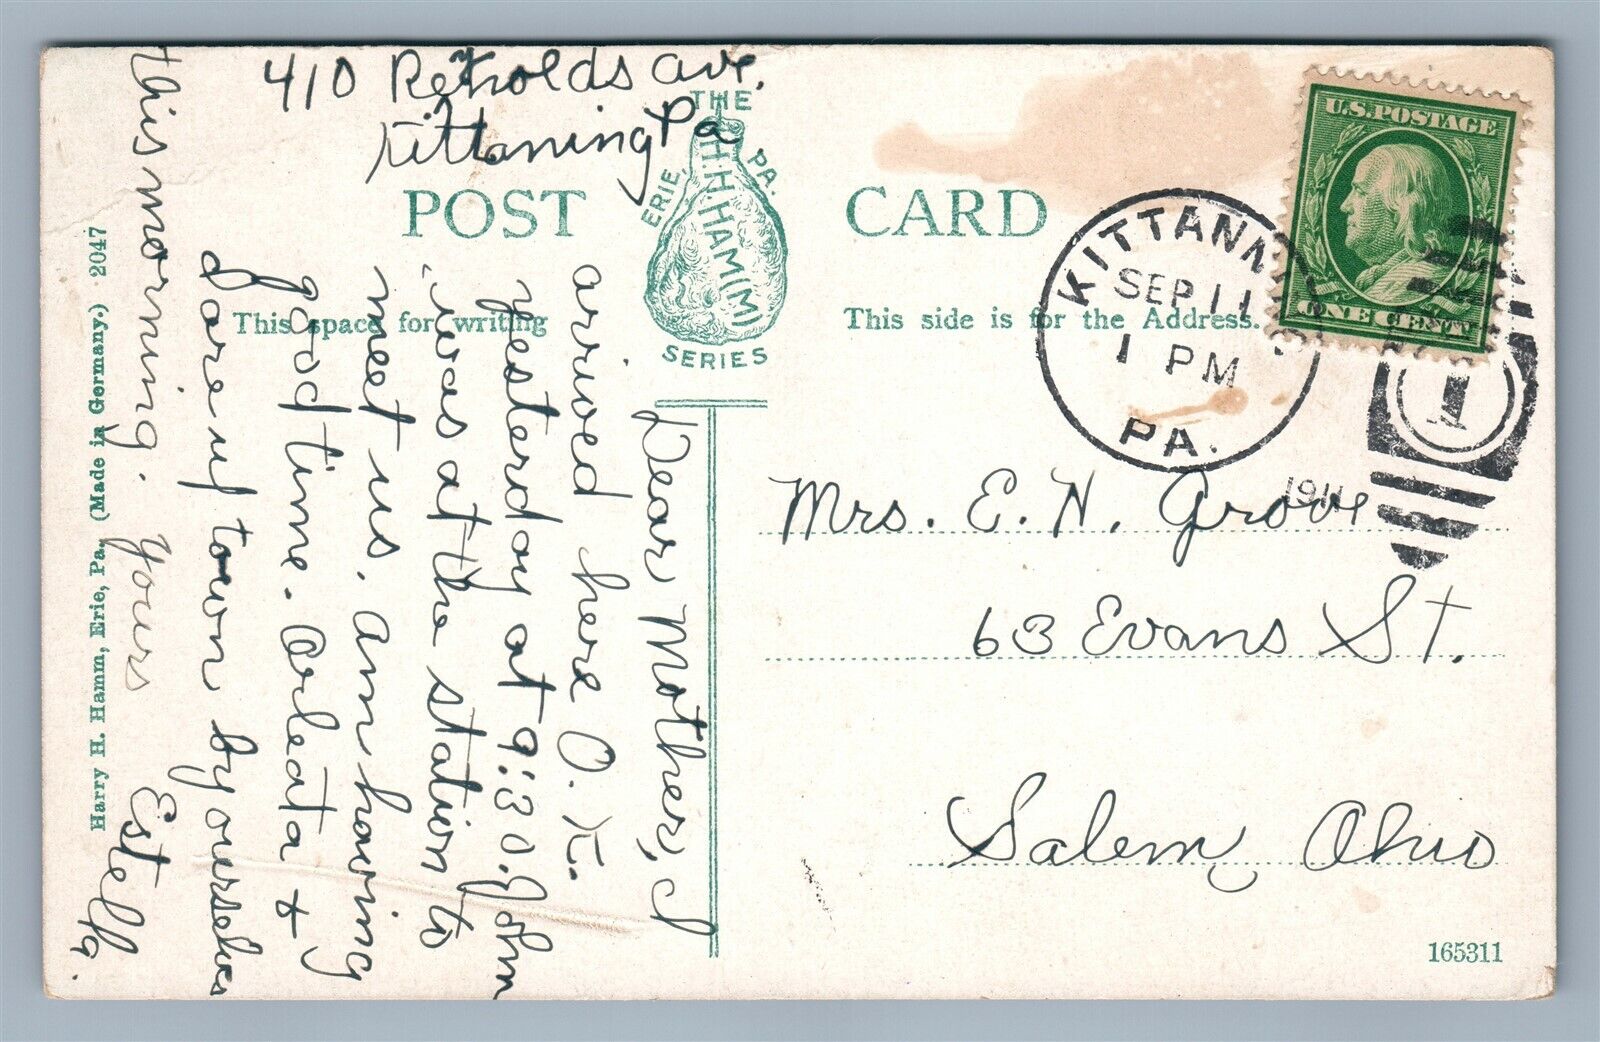 410 Reynolds ave.
Kittaning Pa
THE
H.H.HAM(M)
ERIE, PA.
SERIES
POST CARD
This space for writing
This side is for the Address.
KITTANNING
SEP 11
1 PM
1911
PA.
U.S. POSTAGE
ONE CENT
1
Dear Mother, I
arrived here O.K.
yesterday at 9:30. John
was at the station to
meet us. Am having
good time. Arleata &
I are up town by ourselves
this morning. Yours
Estella.
Mrs. E. H. Grove
63 Evans St.
Salem, Ohio
Harry H. Hamm, Erie, Pa. (Made in Germany.) 2047
165311